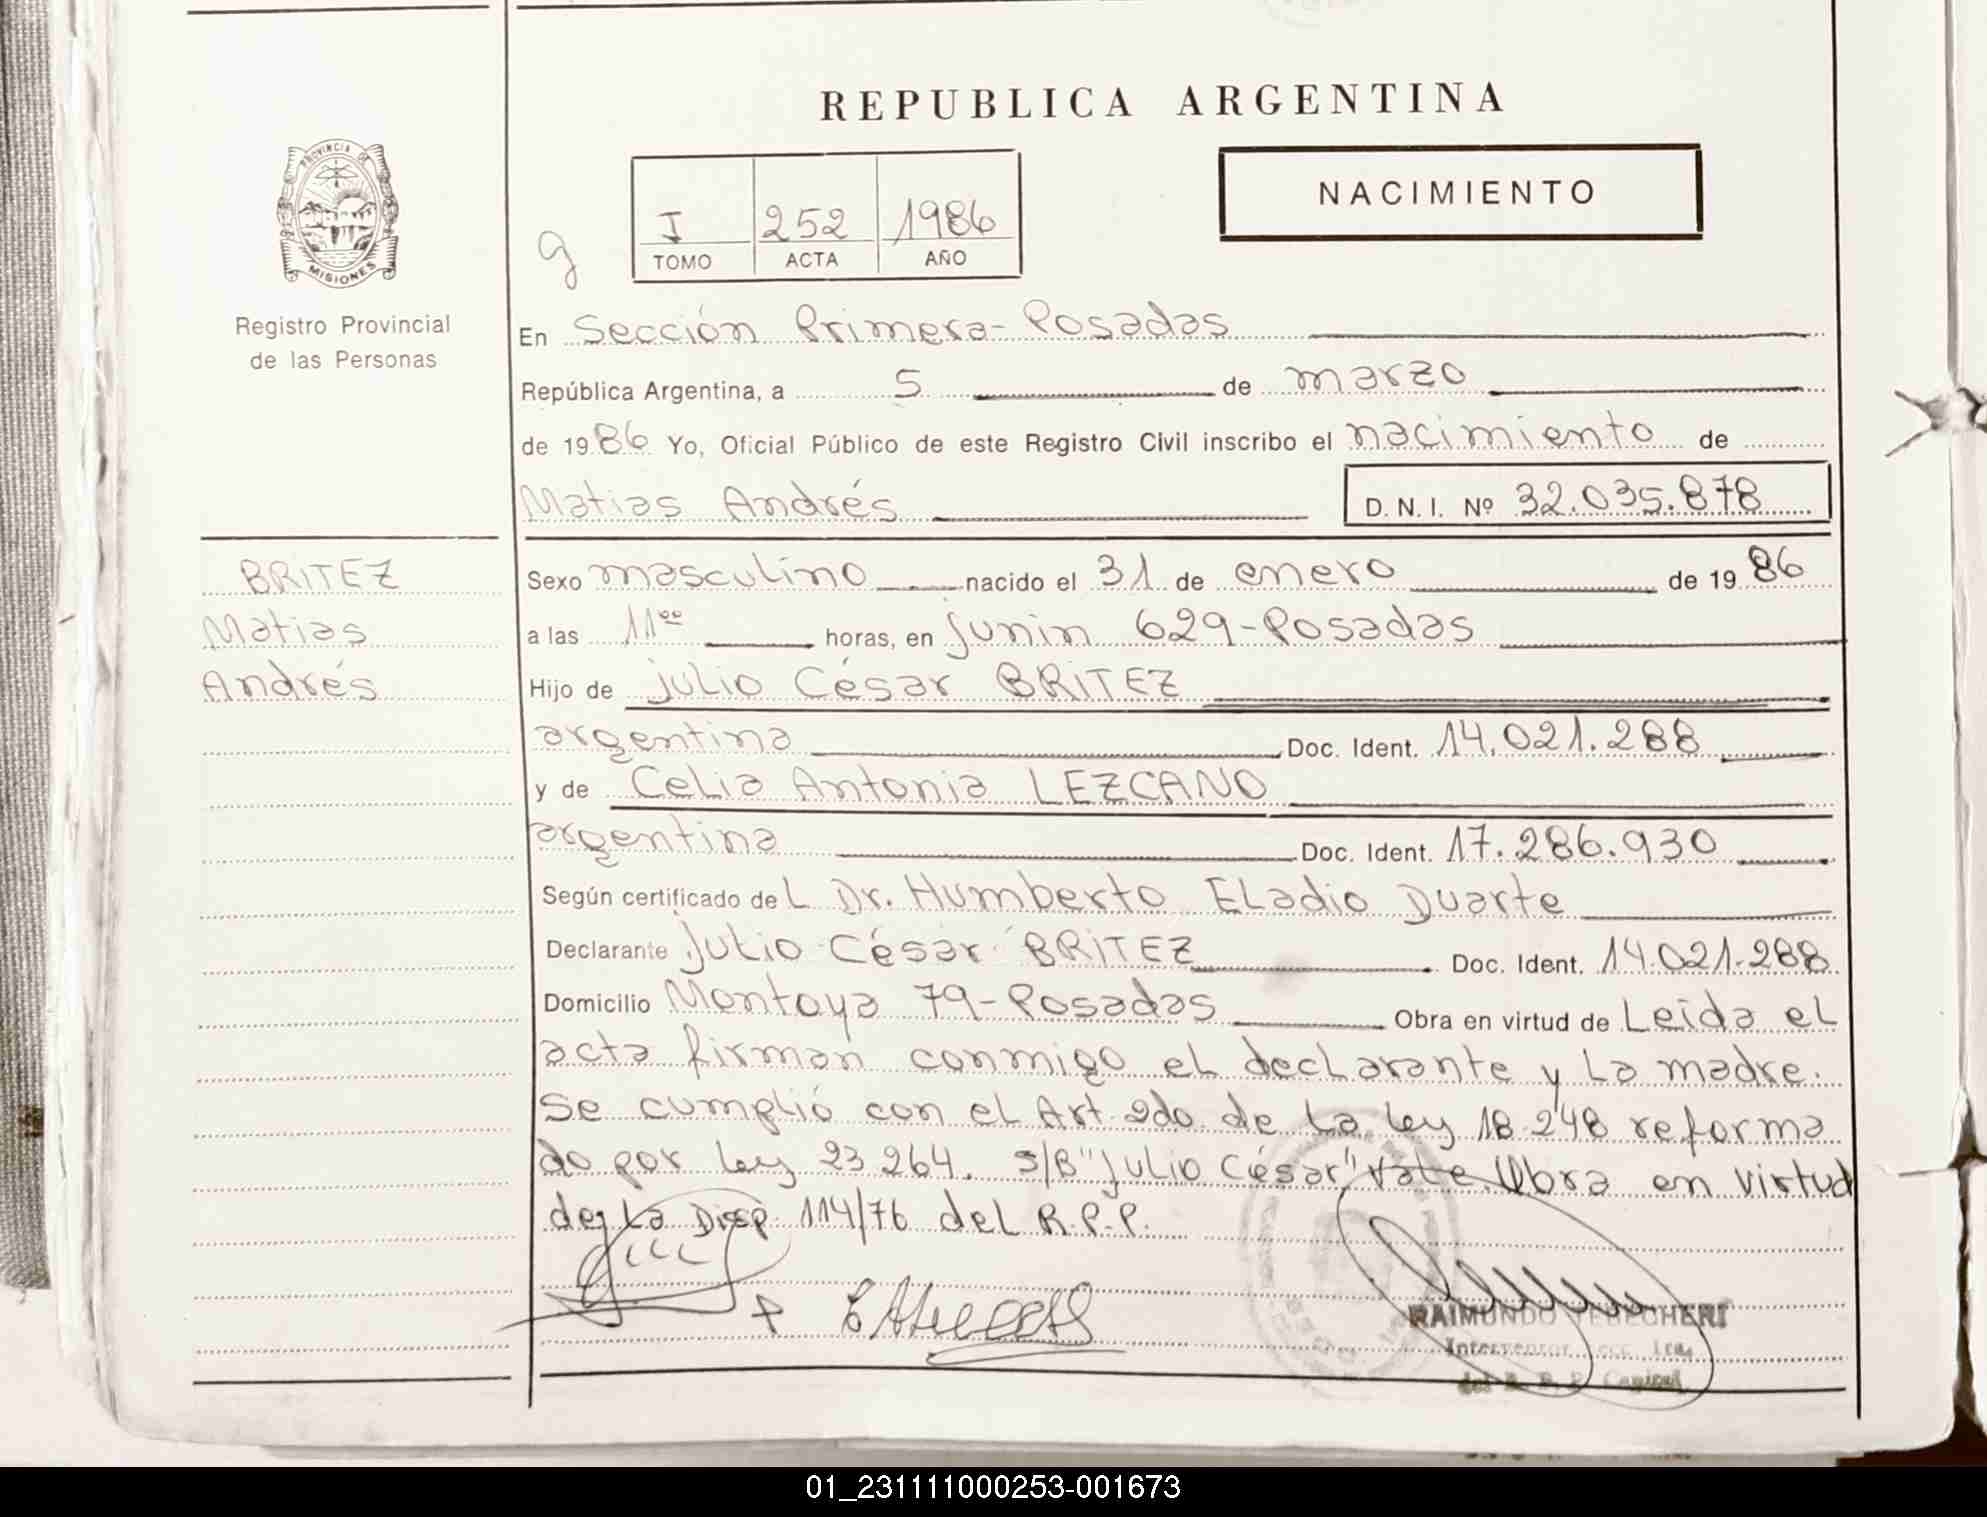 REPUBLICA ARGENTINA
PROVINCIA DE
MISIONES
Registro Provincial
de las Personas
NACIMIENTO
g
I 252 1986
TOMO ACTA AÑO
En Sección Primera- Posadas
República Argentina, a 5 de marzo
de 1986 Yo, Oficial Público de este Registro Civil inscribo el nacimiento de
Matias Andrés D. N. I. Nº 32.035.878
BRITEZ
Matias
Andrés
Sexo masculino nacido el 31 de enero de 1986
a las 11⁰⁰ horas, en Junin 629-Posadas
Hijo de Julio César BRITEZ
argentina Doc. Ident. 14.021.288
y de Celia Antonia LEZCANO
argentina Doc. Ident. 17.286.930
Según certificado del Dr. Humberto Eladio Duarte
Declarante Julio César BRITEZ Doc. Ident. 14.021.288
Domicilio Montoya 79-Posadas Obra en virtud de Leida el
acta firman conmigo el declarante y la madre.
Se cumplió con el Art 2do de la ley 18.248 reforma
do por ley 23 264. S/B "Julio César" Vale. Obra en virtud
de la Disp 114/76 del R.P.P.
RAIMUNDO
Interventor Secc. 1ra.
del R. P. P. Capital
01_231111000253-001673